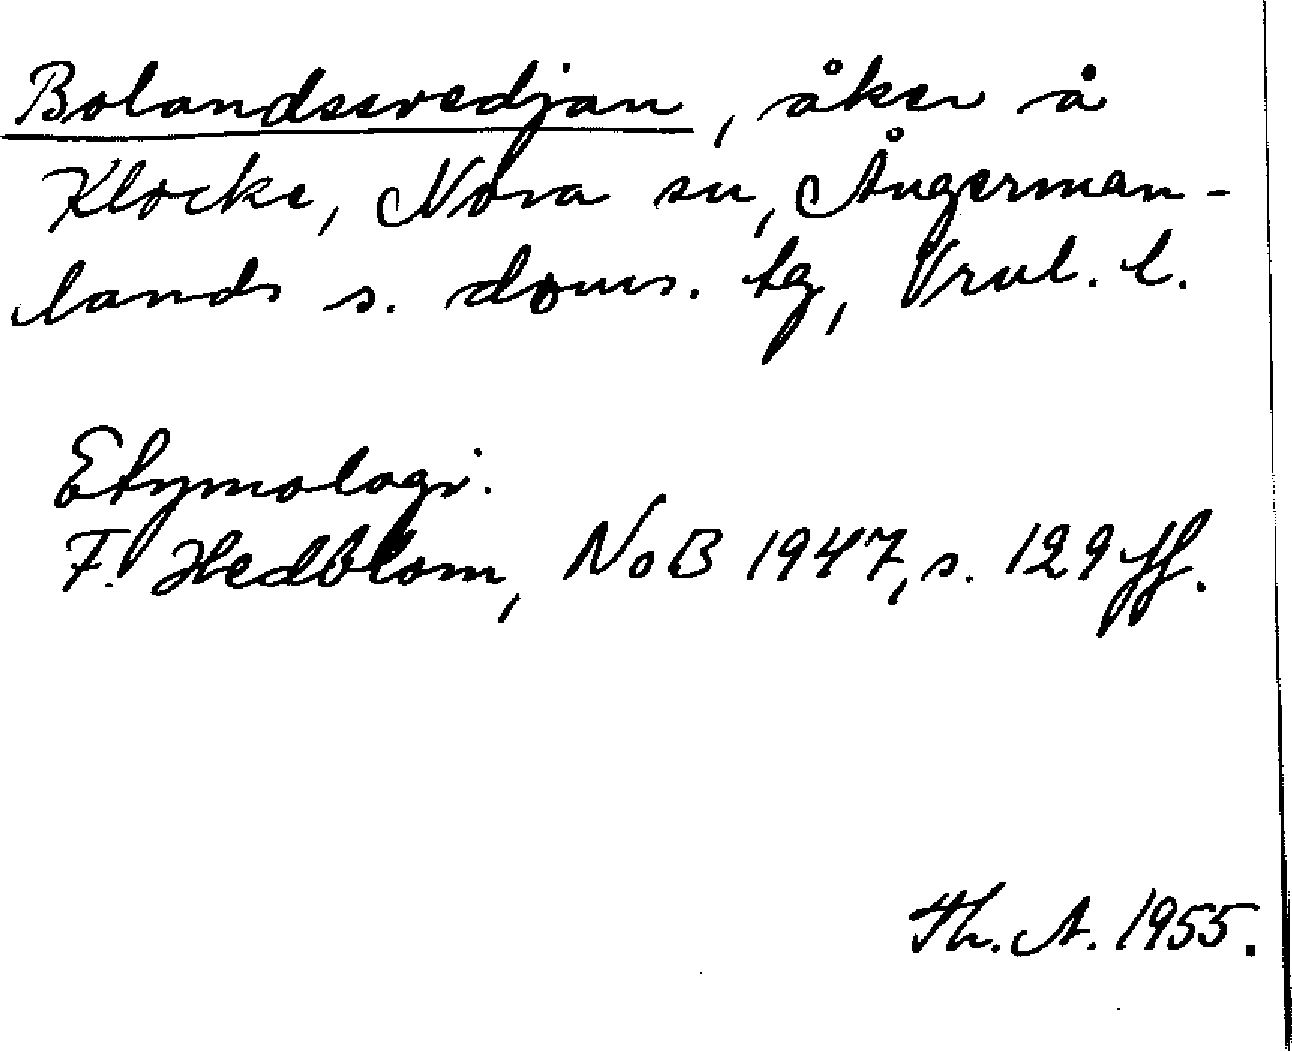 Bolandssvedjan, åker å
Klocke, Nora sn, Ångerman-
lands s. doms. tg, Vrnl. l.
Etymologi.
F. Hedblom, NoB 1947, s. 129 ff.
Th. A. 1955.